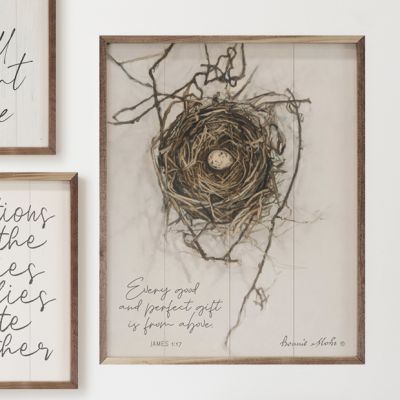 ll
nt
e
tions
the
ies
lies
te
ther
Every good
and perfect gift
is from above.
JAMES 1:17
Bonnie Mohr ©